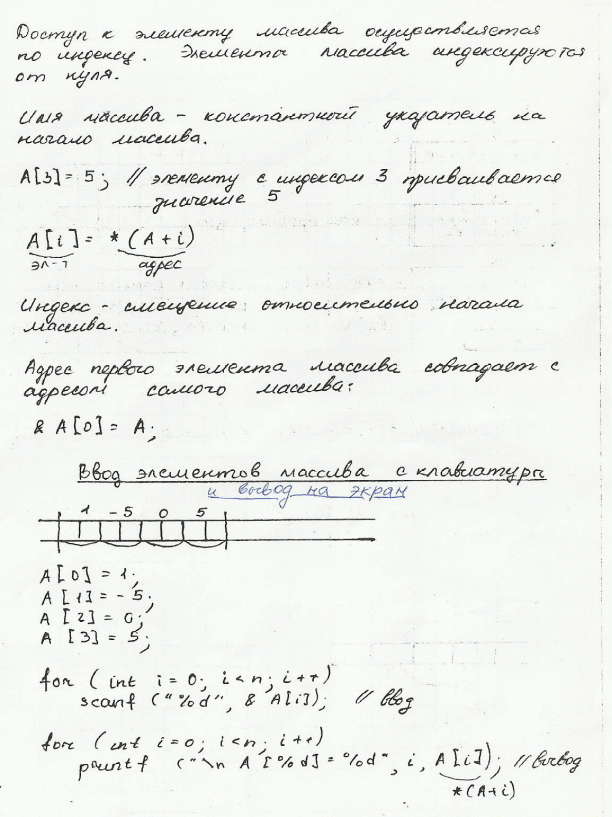 Доступ к элементу массива осуществляется
по индексу. Элементы массива индексируются
от нуля.
Имя массива - константный указатель на
начало массива.
A[3] = 5; // элементу с индексом 3 присваивается
значение 5
A[i] = *(A+i)
эл-т адрес
Индекс - смещение относительно начала
массива.
Адрес первого элемента массива совпадает с
адресом самого массива:
& A[0] = A;
Ввод элементов массива с клавиатуры
и вывод на экран
1 -5 0 5
A[0] = 1;
A[1] = -5;
A[2] = 0;
A[3] = 5;
for (int i = 0; i<n; i++)
scanf ("%d", & A[i]); // ввод
for (int i=0; i<n; i++)
printf ("\n A[%d] = %d", i, A[i]); // вывод
*(A+i)